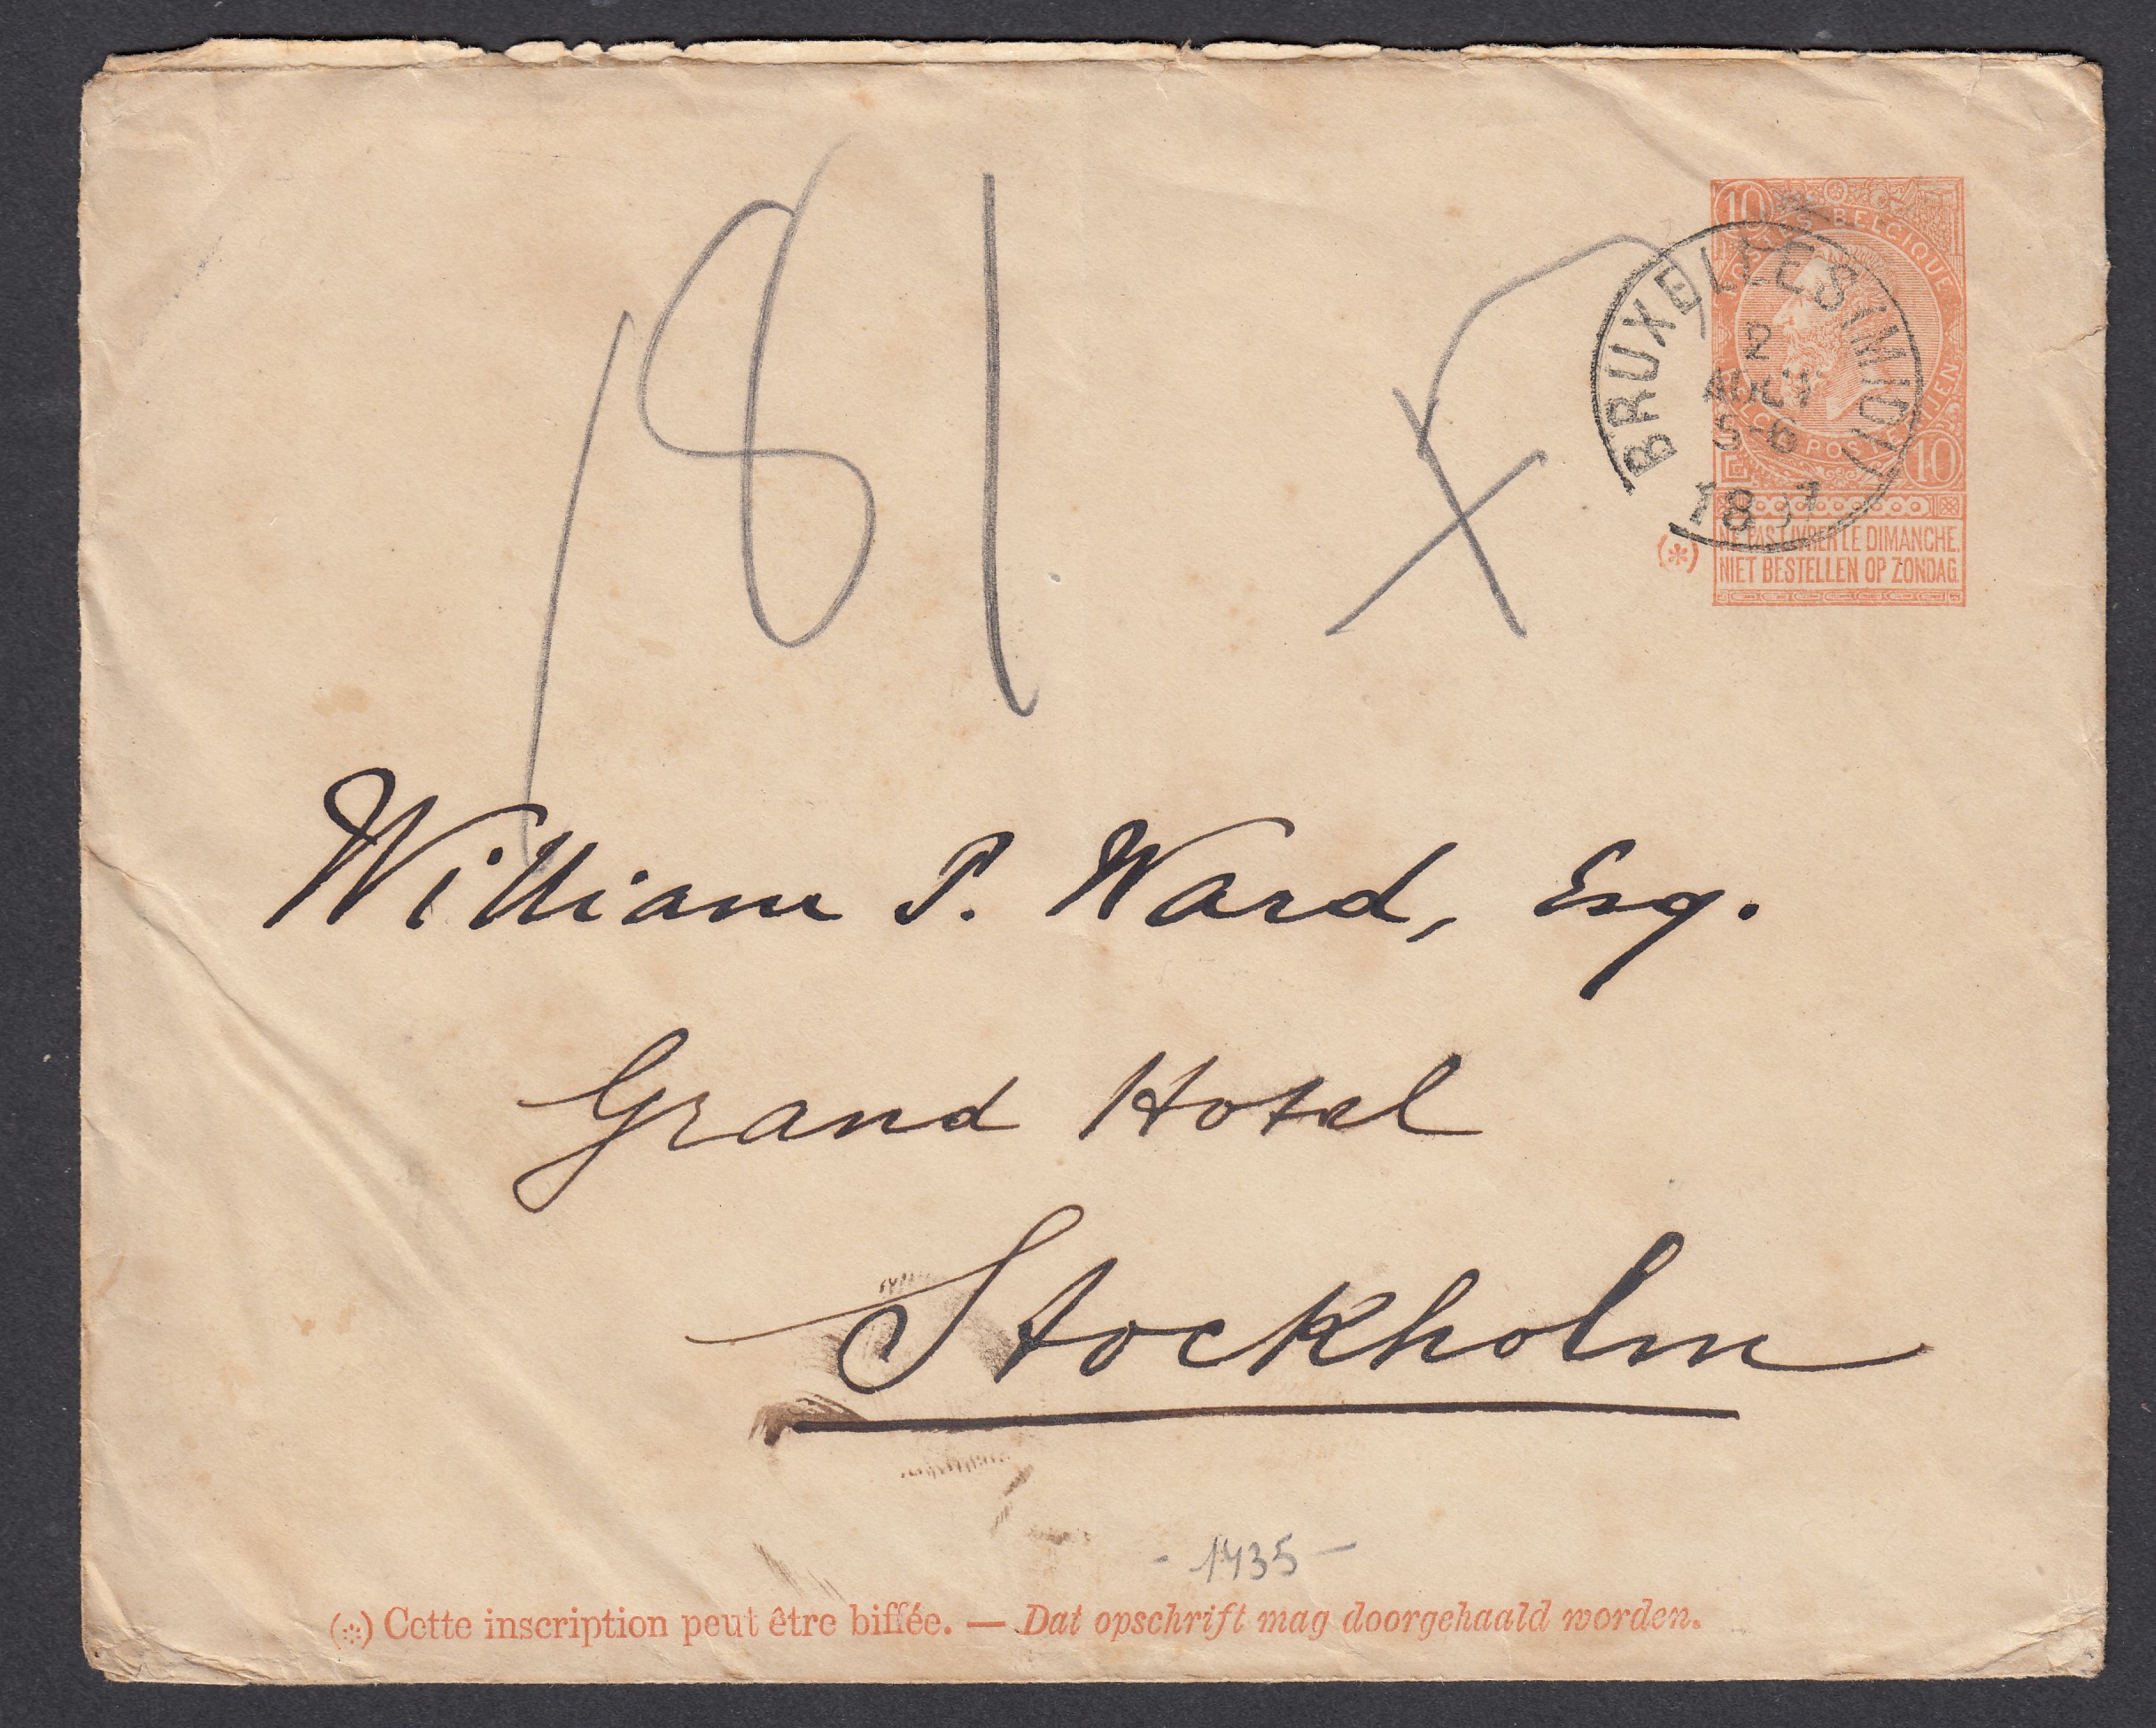 181
10
POSTES BELGIQUE
BELGIË POSTERIJEN
10
BRUXELLES (MIDI)
2
AOUT
5-6
NE PAS LIVRER LE DIMANCHE.
(*) NIET BESTELLEN OP ZONDAG
William P. Ward, Esq.
Grand Hotel
Stockholm
- 1435 -
(*) Cette inscription peut être biffée. — Dat opschrift mag doorgehaald worden.